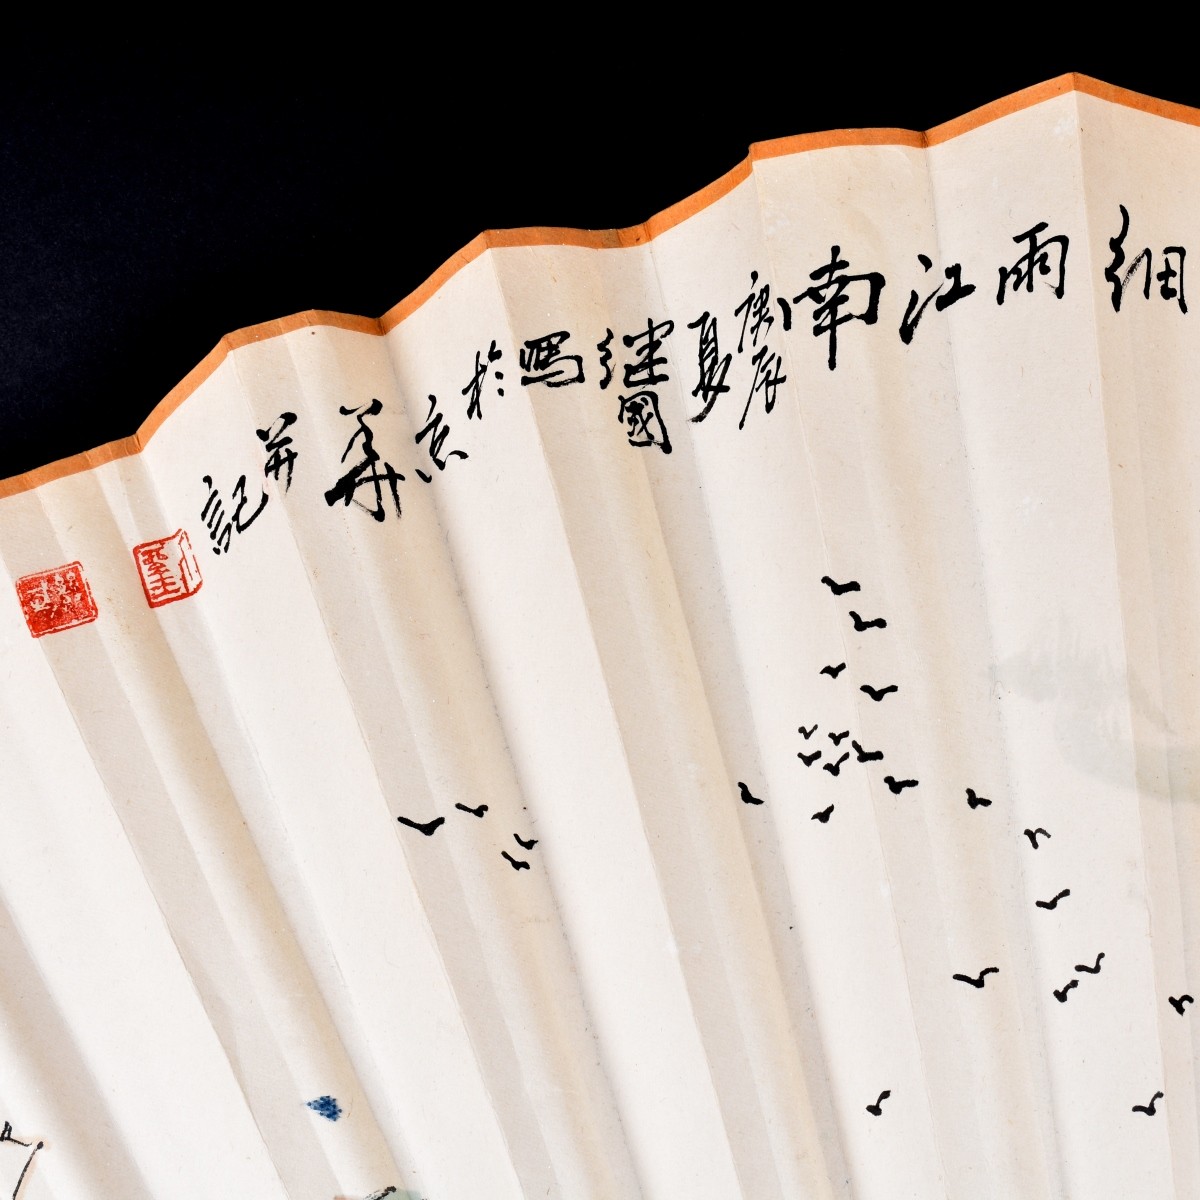 細雨江南
庚辰夏继國寫於京華并記